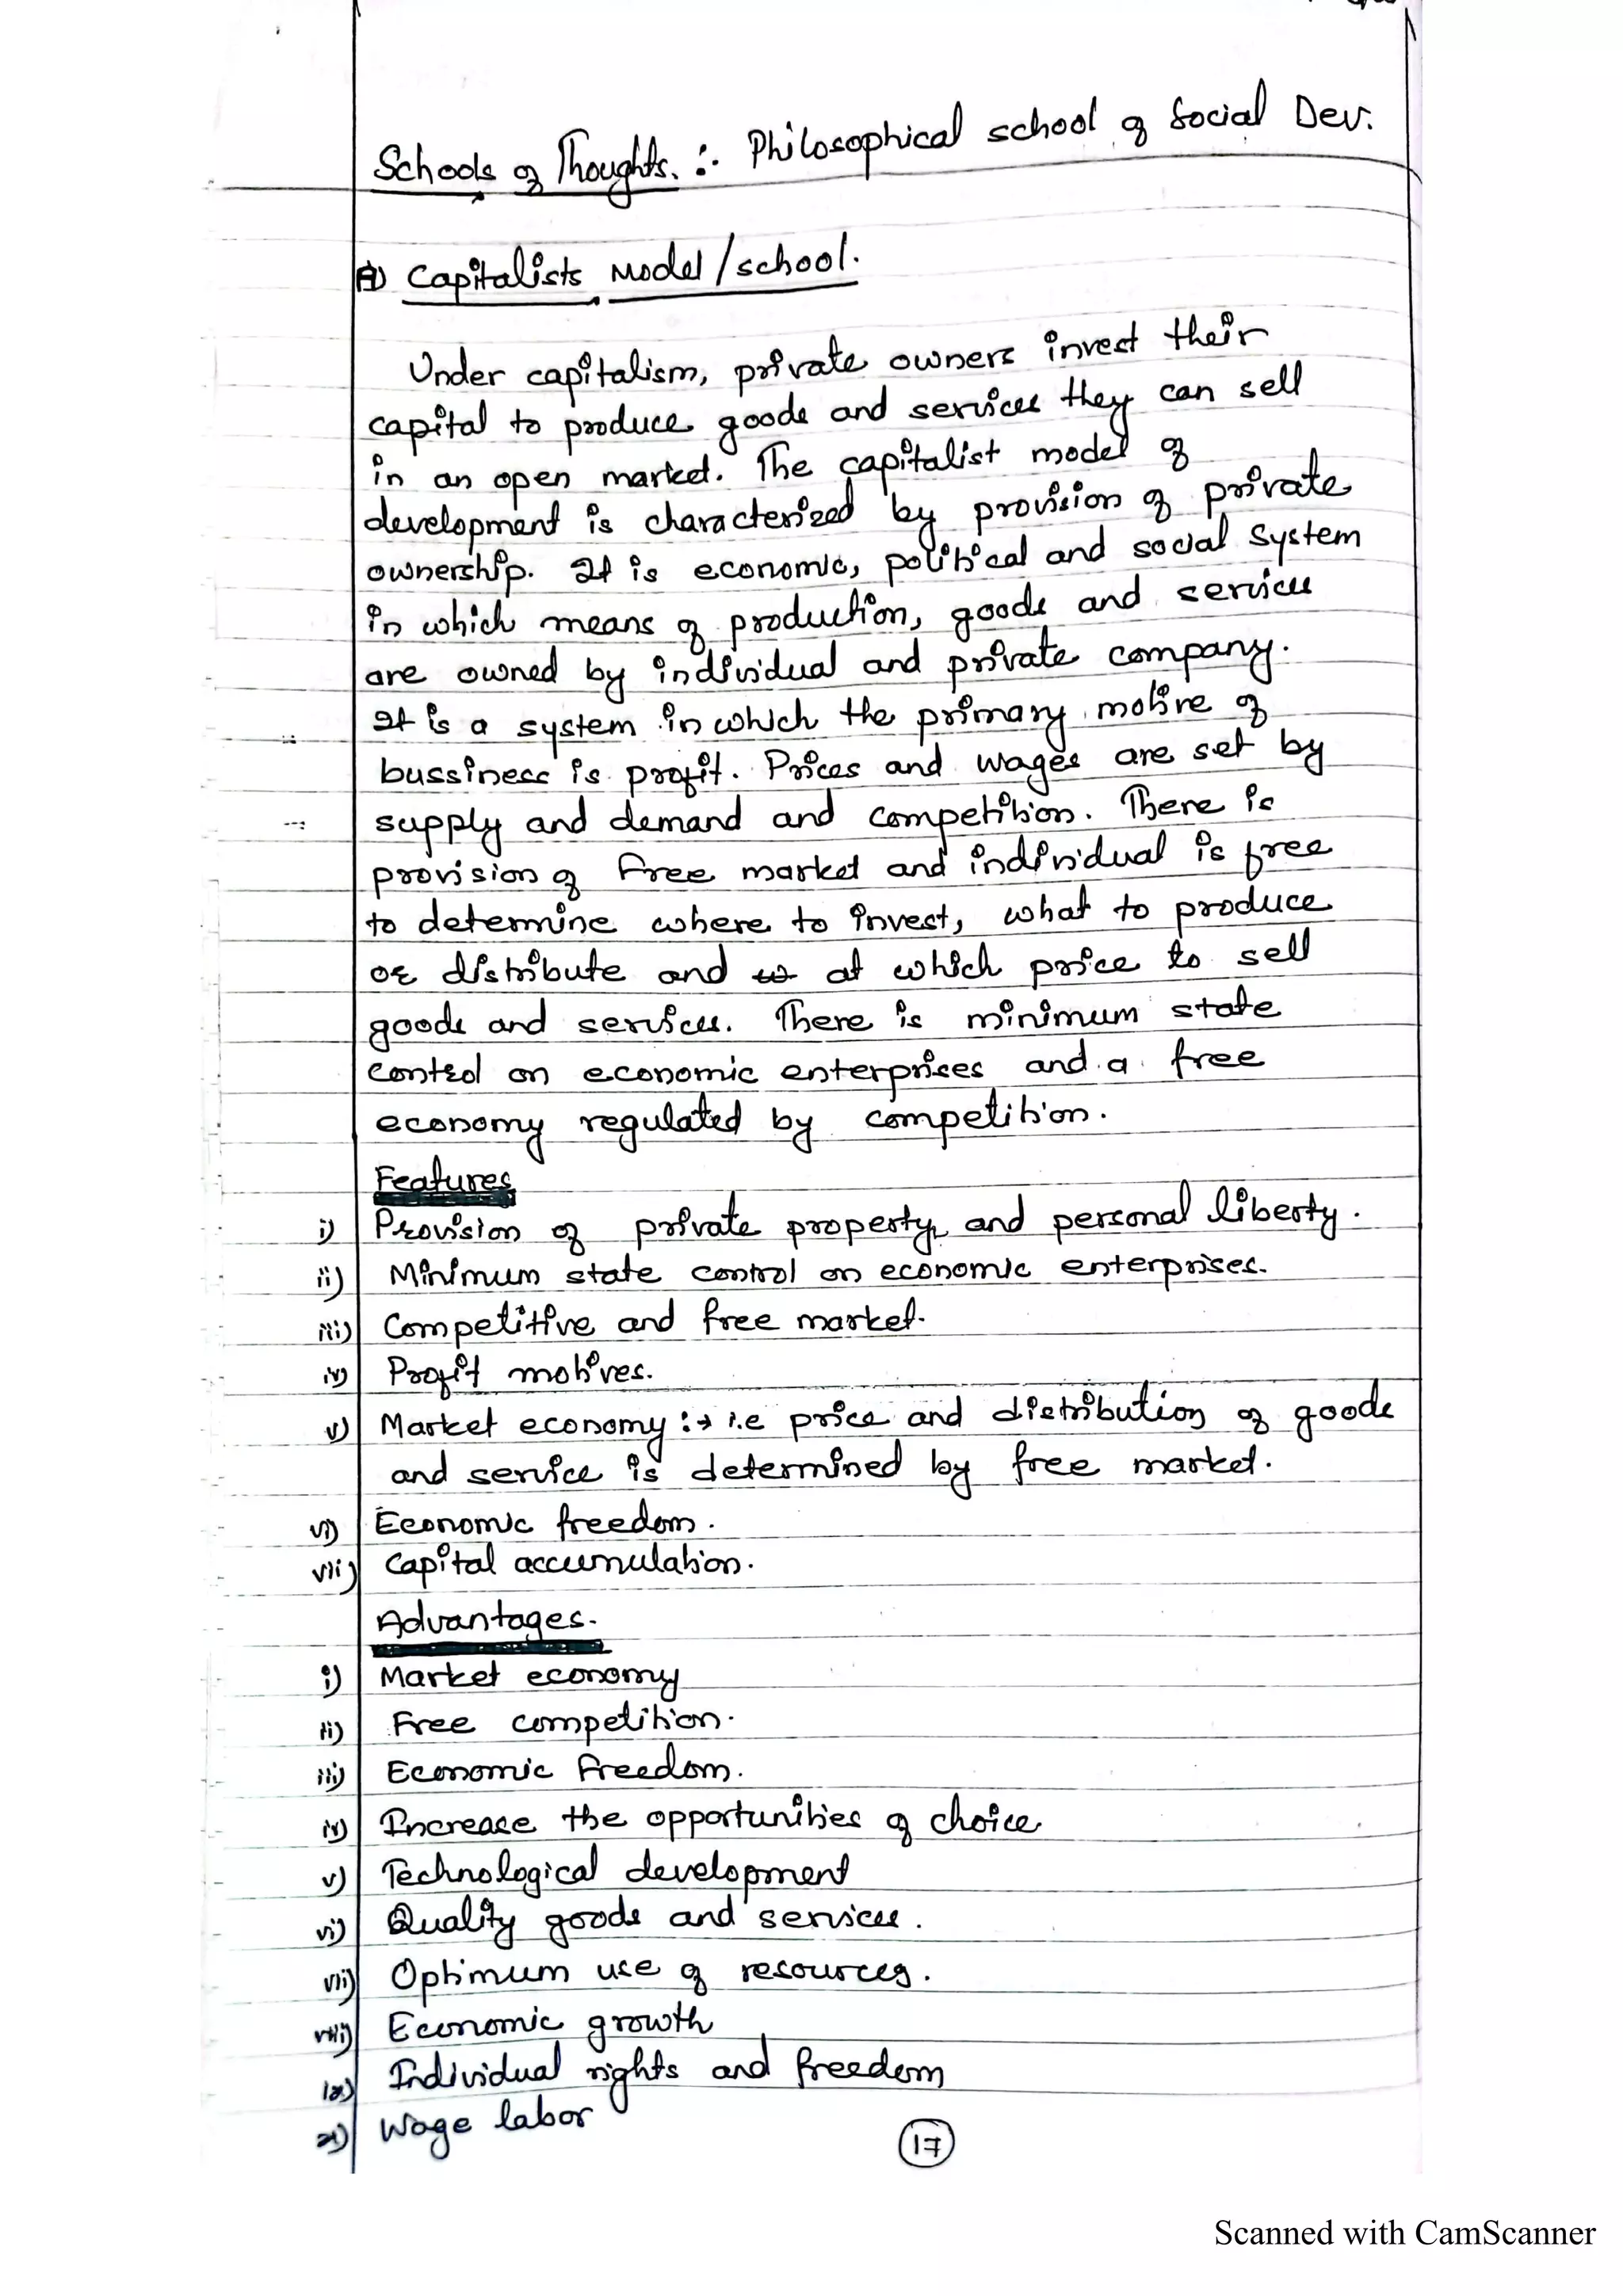 Schools of Thoughts. :- Philosophical school of Social Dev.
A) Capitalists Model/school.
Under capitalism, private owners invest their
capital to produce goods and services they can sell
in an open market. The capitalist model of
development is characterized by provision of private
ownership. It is economic, political and social system
in which means of production, goods and services
are owned by individual and private company.
It is a system in which the primary motive of
bussiness is profit. Prices and wages are set by
supply and demand and competition. There is
provision of free market and individual is free
to determine where to invest, what to produce
or distribute and at which price to sell
goods and services. There is minimum state
control on economic enterprises and a free
economy regulated by competition.
Features
i) Provision of private property and personal liberty.
ii) Minimum state control on economic enterprises.
iii) Competitive and free market.
iv) Profit motives.
v) Market economy :→ i.e price and distribution of goods
and service is determined by free market.
vi) Economic freedom.
vii) Capital accumulation.
Advantages.
i) Market economy
ii) Free competition.
iii) Economic freedom.
iv) Increase the opportunities of choice
v) Technological development
vi) Quality goods and services.
vii) Optimum use of resources.
viii) Economic growth
ix) Individual rights and freedom
x) Wage labor
17
Scanned with CamScanner